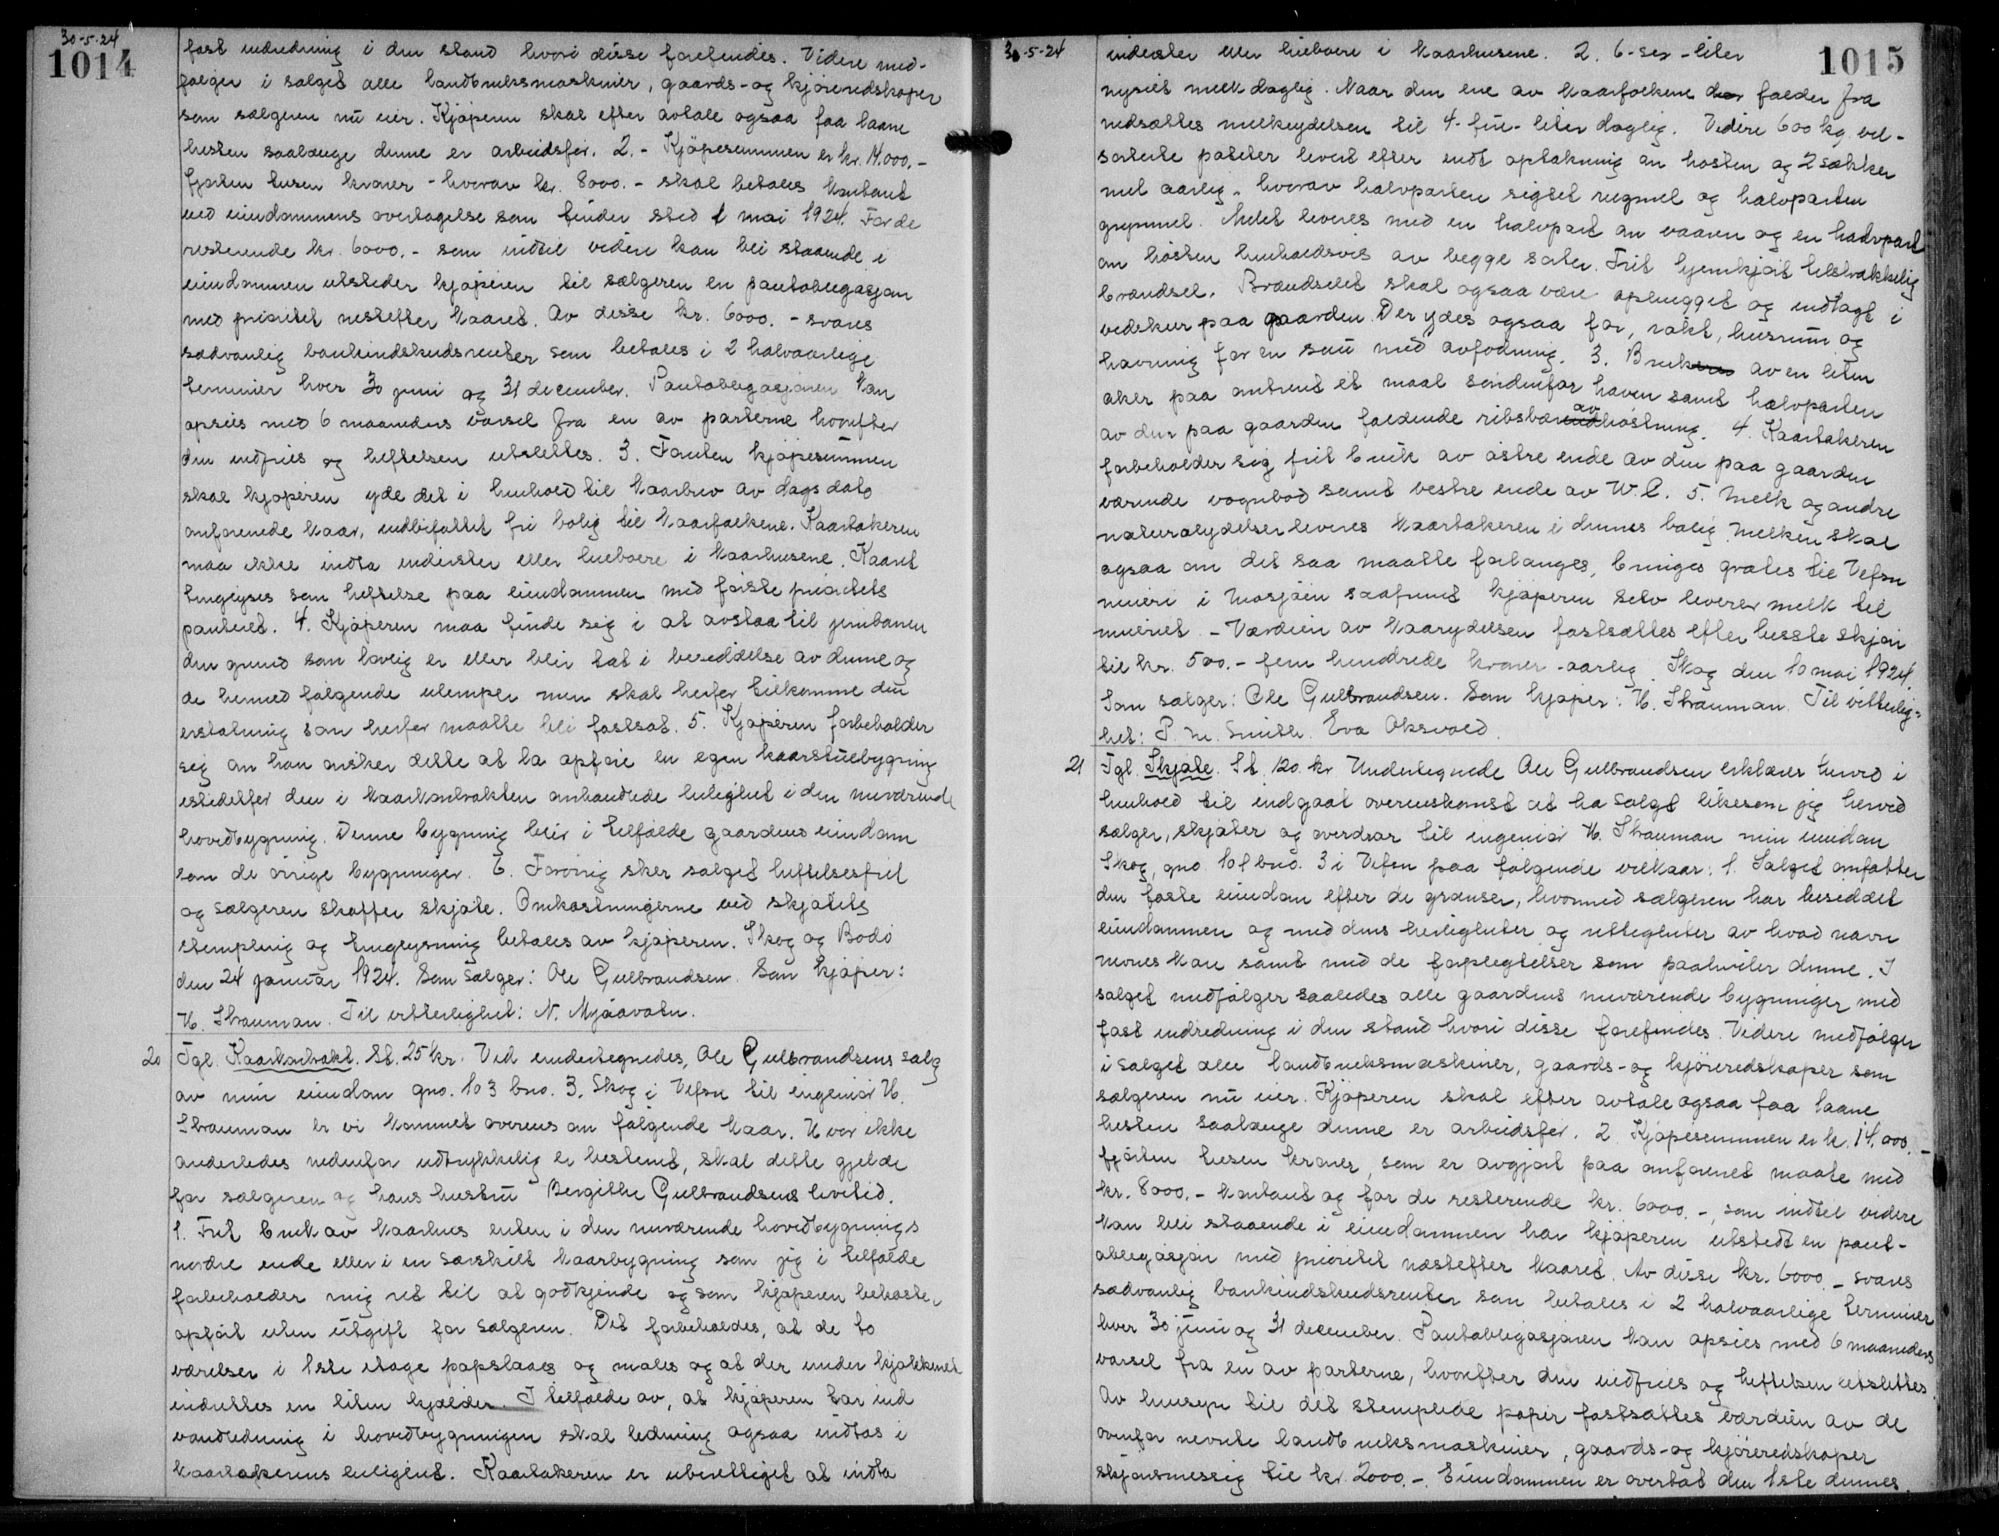 30-5-24
1014
fast indredning i den stand hvori disse forefindes. Videre med-
følger i salget alle landbruksmaskiner, gaards- og kjøreredskaper
som sælgeren nu eier. Kjøperen skal efter avtale ogsaa faa laane
hesten saalænge denne er arbeidsfør. 2. - Kjøpesummen er kr. 14.000.-
fjorten tusen kroner - hvorav kr. 8000.- skal betales kontant
ved eiendommens overtagelse som finder sted 1 mai 1924. For de
resterende kr. 6000.- som indtil videre kan bli staaende i
eiendommen utsteder kjøperen til sælgeren en pantobligasjon
med prioritet nestefter kaaret. Av disse kr. 6000.- svares
sædvanlig bankindskudsrenter som betales i 2 halvaarlige
terminer hver 30 juni og 31 december. Pantobligasjonen kan
opsies med 6 maaneders varsel fra en av parterne hvorefter
den indfries og heftelsen utslettes. 3. Foruten kjøpesummen
skal kjøperen yde det i henhold til kaarbrev av dags dato
anførende kaar, indbefattet fri bolig til kaarfolkene. Kaartakeren
maa ikke indta inderster eller leieboere i kaarhusene. Kaaret
tinglyses som heftelse paa eiendommen med første prioritets
panteret. 4. Kjøperen maa finde sig i at avstaa til jernbanen
den grund som lovlig er eller blir tat i besiddelse av denne og
de hermed følgende ulemper men skal herfor tilkomme den
erstatning som herfor maatte bli fastsat. 5. Kjøperen forbeholder
sig om han ønsker dette at la opføre en egen kaarstuebygning
istedetfor den i kaarkontrakten omhandlede leilighet i den nuværende
hovedbygning. Denne bygning blir i tilfælde gaardens eiendom
som de øvrige bygninger. 6. Forøvrig sker salget heftelsesfrit
og sælgeren skaffer skjøte. Omkostningerne ved skjøtets
stempling og tinglysning betales av kjøperen. Skog og Bodø
den 24 januar 1924. Som sælger: Ole Gulbrandsen. Som kjøper:
H. Strauman. Til vitterlighet: N. Mjaavatn.
20 Tgl. Kaarkontrakt. St. 25 kr. Ved undertegnedes, Ole Gulbrandsens salg
av min eiendom gno. 103 bno. 3. Skog i Vefsn til ingeniør H.
Strauman er vi kommet overens om følgende kaar. Hvor ikke
anderledes nedenfor uttrykkelig er bestemt, skal dette gjelde
for sælgeren og hans hustru Bergithe Gulbrandsens levetid.
1. Frit bruk av kaarhus enten i den nuværende hovedbygnings
nordre ende eller i en særskilt kaarbygning som jeg i tilfælde
forbeholder mig ret til at godkjende og som kjøperen bekoster
opført uten utgift for sælgeren. Det forbeholdes, at de to
værelser i 1ste etage papslaaes og males og at der under kjøkkenet
indrettes en liten kjælder. I tilfælde av, at kjøperen tar ind
vandledning i hovedbygningen skal ledning ogsaa indtas i
kaartakerens leilighet. Kaartakeren er uberettiget at indta
30-5-24
1015
inderster eller leieboere i kaarhusene. 2. 6-sex-liter
nysiet melk daglig. Naar den ene av kaarfolkene falder fra
nedsættes melkeydelsen til 4-fire-liter daglig. Videre 600 kg. vel-
sorterte poteter levert efter endt optakning om høsten og 2 sækker
mel aarlig, hvorav halvparten sigtet rugmel og halvparten
grynmel. Melet leveres med en halvpart om vaaren og en halvpart
om høsten henholdsvis av begge sorter. Frit hjemkjørt tilstrækkelig
brændsel. Brændselet skal ogsaa være ophugget og indlagt i
vedskur paa gaarden. Der ydes ogsaa for, røkt, husrum og
havning for en sau med avfødning. 3. Bruk av en liten
aker paa omtrent et maal søndenfor haven samt halvparten
av den paa gaarden faldende ribsbær av høstning. 4. Kaartakeren
forbeholder sig frit bruk av østre ende av den paa gaarden
værende vognbod samt vestre ende av W.C. 5. Melk og andre
naturalydelser leveres kaartakeren i dennes bolig. Melken skal
ogsaa om det saa maatte forlanges, bringes gratis til Vefsn
meieri i Mosjøen saafremt kjøperen selv leverer melk til
meieriet. - Værdien av kaarydelsen fastsættes efter beste skjøn
til kr. 500.- fem hundrede kroner - aarlig. Skog den 10 mai 1924.
Som sælger: Ole Gulbrandsen. Som kjøper: H. Strauman. Til vitterlig-
het: P. M. Smith. Eva Oksvold.
21 Tgl. Skjøte. St. 120 kr. Undertegnede Ole Gulbrandsen erklærer herved i
henhold til indgaat overenskomst at ha solgt likesom jeg herved
sælger, skjøter og overdrar til ingeniør H. Strauman min eiendom
Skog, gno. 101 bno. 3 i Vefsn paa følgende vilkaar: 1. Salget omfatter
den faste eiendom efter de grænser, hvormed sælgeren har besiddet
eiendommen og med dens herligheter og rettigheter av hvad navn
nevnes kan samt med de forpligtelser som paahviler denne. I
salget medfølger saaledes alle gaardens nuværende bygninger med
fast indredning i den stand hvori disse forefindes. Videre medfølger
i salget alle landbruksmaskiner, gaards- og kjøreredskaper som
sælgeren nu eier. Kjøperen skal efter avtale ogsaa faa laane
hesten saalænge denne er arbeidsfør. 2. Kjøpesummen er kr. 14.000.-
fjorten tusen kroner, som er avgjort paa anførnet maate med
kr. 8000.- kontant og for de resterende kr. 6000.-, som indtil videre
kan bli staaende i eiendommen har kjøperen utstedt en pant-
obligasjon med prioritet næstefter kaaret. Av disse kr. 6000.- svares
sædvanlig bankindskudsrenter som betales i 2 halvaarlige terminer
hver 30 juni og 31 december. Pantobligasjonen kan opsies med 6 maaneders
varsel fra en av parterne, hvorefter den indfries og heftelsen utslettes.
Av hensyn til det stemplede papir fastsættes værdien av de
ovenfor nevnte landbruksmaskiner, gaards- og kjøreredskaper
skjønsmessig til kr. 2000.-. Eiendommen er overtat den 1ste dennes.